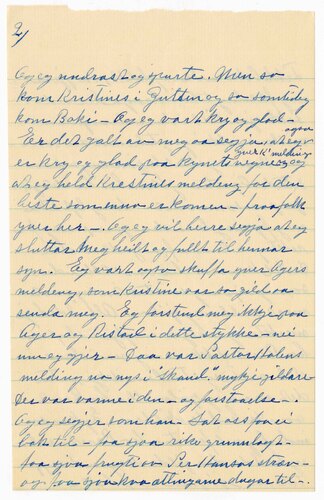 2)
Og eg undrast og spurte. Men so
kom Kristines i Duluth og so somtidig
kom Boki - Og eg vart kry og glad -
Er det galt av meg aa segja, at eg ogso
er kry og glad paa kynets vegne og yver K' melding
at eg held Krestines melding for den
beste som enno er komen - fraa folk
yver her - . Og eg vil heire segja at eg
sluttar meg heilt og fullt til hennar
syn. Eg vart ogso skuffa yver Agers
melding, som Kristine var so gild aa
senda meg. Eg forstend meg ikkje paa
Ager og Ristad i dette stykke - nei
um eg gjer - Daa var Pastor Holens
melding no nys i "Skand." mykje gildare
der var varme i den - og forstaaelse -
Og eg segjer som han - Lat oss faa ei
bok til - faa sjaa rike grunnlagt -
faa sjaa frugti av Per Hansas stræv -
og faa sjaa kvaattingane dagar til - .